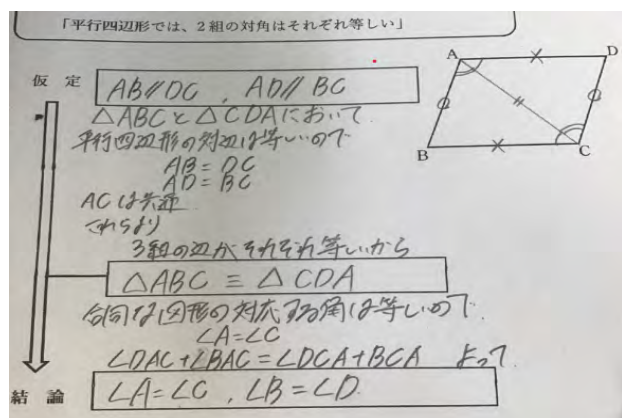 「平行四辺形では、2組の対角はそれぞれ等しい」
仮定
AB//DC , AD//BC
△ABCと△CDAにおいて
平行四辺形の対辺は等しいので
AB=DC
AD=BC
ACは共通
これらより
3組の辺がそれぞれ等しいから
△ABC≡△CDA
合同な図形の対応する角は等しいので
∠A=∠C
∠DAC+∠BAC=∠DCA+BCA よって
結論
∠A=∠C , ∠B=∠D.
A
D
B
C